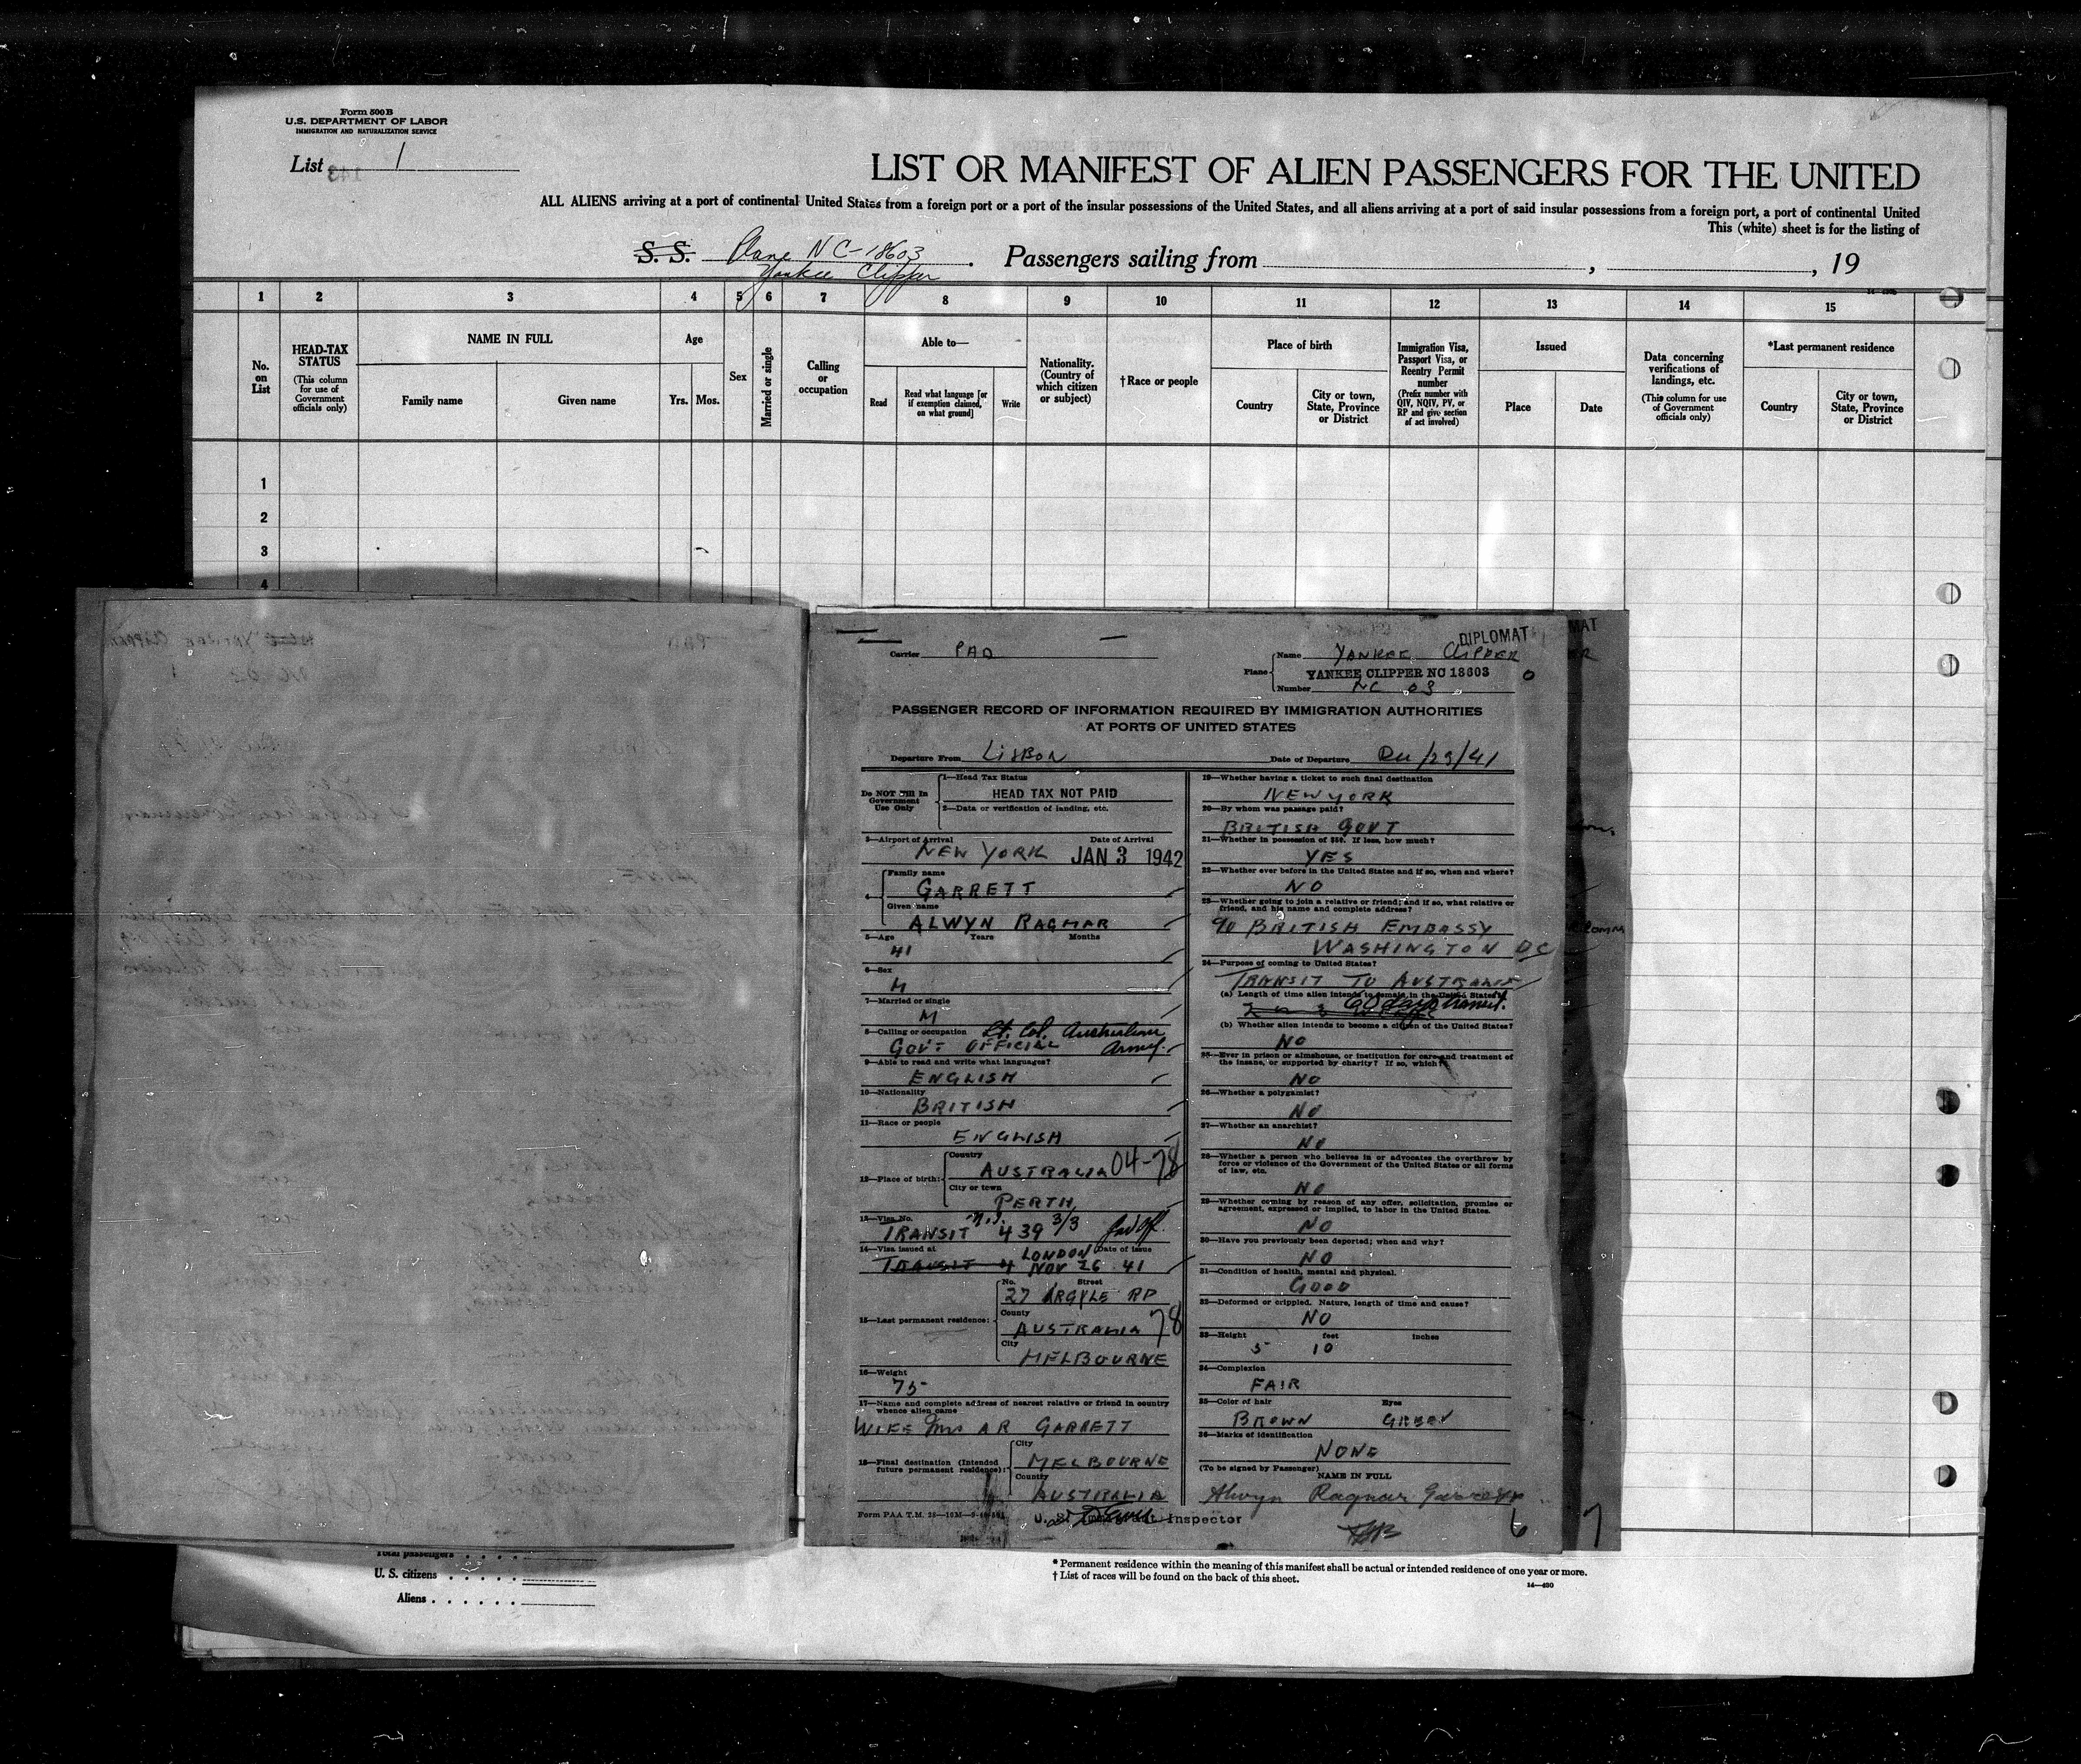 Form 500 B
U.S. DEPARTMENT OF LABOR
IMMIGRATION AND NATURALIZATION SERVICE
List 1
143
LIST OR MANIFEST OF ALIEN PASSENGERS FOR THE UNITED
ALL ALIENS arriving at a port of continental United States from a foreign port or a port of the insular possessions of the United States, and all aliens arriving at a port of said insular possessions from a foreign port, a port of continental United
This (white) sheet is for the listing of
S. S. Plane NC-18603 Passengers sailing from , , 19
Yankee Clipper
1 2 3 4 5 6 7 8 9 10 11 12 13 14 15
No. on List
HEAD-TAX STATUS
(This column for use of Government officials only)
NAME IN FULL
Family name
Given name
Age
Yrs. Mos.
Sex
Married or single
Calling or occupation
Able to—
Read
Read what language [or if exemption claimed, on what ground]
Write
Nationality. (Country of which citizen or subject)
†Race or people
Place of birth
Country
City or town, State, Province or District
Immigration Visa, Passport Visa, or Reentry Permit number
(Prefix number with QIV, NQIV, PV, or RP and give section of act involved)
Issued
Place
Date
Data concerning verifications of landings, etc.
(This column for use of Government officials only)
*Last permanent residence
Country
City or town, State, Province or District
1
2
3
4
DIPLOMAT
MAT
Carrier PAA
Plane
Name YANKEE CLIPPER
YANKEE CLIPPER NC 18603
Number NC 03
PASSENGER RECORD OF INFORMATION REQUIRED BY IMMIGRATION AUTHORITIES
AT PORTS OF UNITED STATES
Departure From LISBON
Date of Departure Dec/29/41
Do NOT Fill In Government Use Only
1—Head Tax Status
HEAD TAX NOT PAID
2—Data or verification of landing, etc.
3—Airport of Arrival Date of Arrival
NEW YORK JAN 3 1942
4—
Family name
GARRETT
Given name
ALWYN RAGNAR
5—Age Years Months
41
6—Sex
M
7—Married or single
M
8—Calling or occupation Lt. Col. Australian
GOVT OFFICIAL Army.
9—Able to read and write what languages?
ENGLISH
10—Nationality
BRITISH
11—Race or people
ENGLISH
12—Place of birth:
Country
AUSTRALIA 04-78
City or town
PERTH
13—Visa No.
TRANSIT 439 3/3
14—Visa issued at LONDON Date of issue
TRANSIT 4 NOV 26 41
15—Last permanent residence:
No. Street
27 ARGYLE RD
County
AUSTRALIA 78
City
MELBOURNE
16—Weight
75
17—Name and complete address of nearest relative or friend in country
whence alien came
WIFE Mrs A R GARRETT
18—Final destination (Intended
future permanent residence):
City
MELBOURNE
Country
AUSTRALIA
Form PAA T.M. 28
U. S. Immigrant Inspector
19—Whether having a ticket to such final destination
NEW YORK
20—By whom was passage paid?
BRITISH GOVT
21—Whether in possession of $50. If less, how much?
YES
22—Whether ever before in the United States and if so, when and where?
NO
23—Whether going to join a relative or friend; and if so, what relative or
friend, and his name and complete address?
c/o BRITISH EMBASSY
WASHINGTON DC
24—Purpose of coming to United States?
TRANSIT TO AUSTRALIA
(a) Length of time alien intends to remain in the United States?
60 days transit.
(b) Whether alien intends to become a citizen of the United States?
NO
25—Ever in prison or almshouse, or institution for care and treatment of
the insane, or supported by charity? If so, which?
NO
26—Whether a polygamist?
NO
27—Whether an anarchist?
NO
28—Whether a person who believes in or advocates the overthrow by
force or violence of the Government of the United States or all forms
of law, etc.
NO
29—Whether coming by reason of any offer, solicitation, promise or
agreement, expressed or implied, to labor in the United States.
NO
30—Have you previously been deported; when and why?
NO
31—Condition of health, mental and physical.
GOOD
32—Deformed or crippled. Nature, length of time and cause?
NO
33—Height feet inches
5 10
34—Complexion
FAIR
35—Color of hair Eyes
BROWN GREEN
36—Marks of identification
NONE
(To be signed by Passenger)
NAME IN FULL
Alwyn Ragnar Garrett
6 7
Total passengers
U. S. citizens
Aliens
* Permanent residence within the meaning of this manifest shall be actual or intended residence of one year or more.
† List of races will be found on the back of this sheet.
14—430